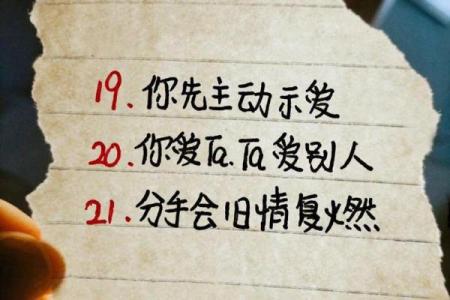 19. 你先主动示爱
20. 你爱Ta.Ta爱别人
21. 分手会旧情复燃